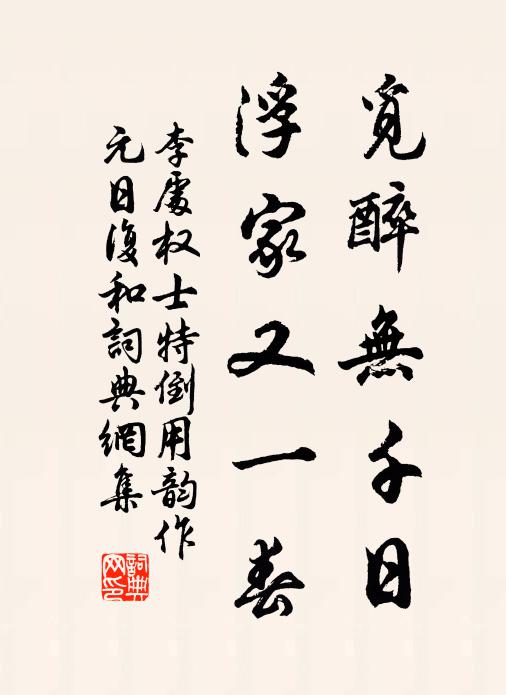 覓醉無千日
浮家又一春
李處权士特倒用韵作
元日復和詞典網集
詞典
网印